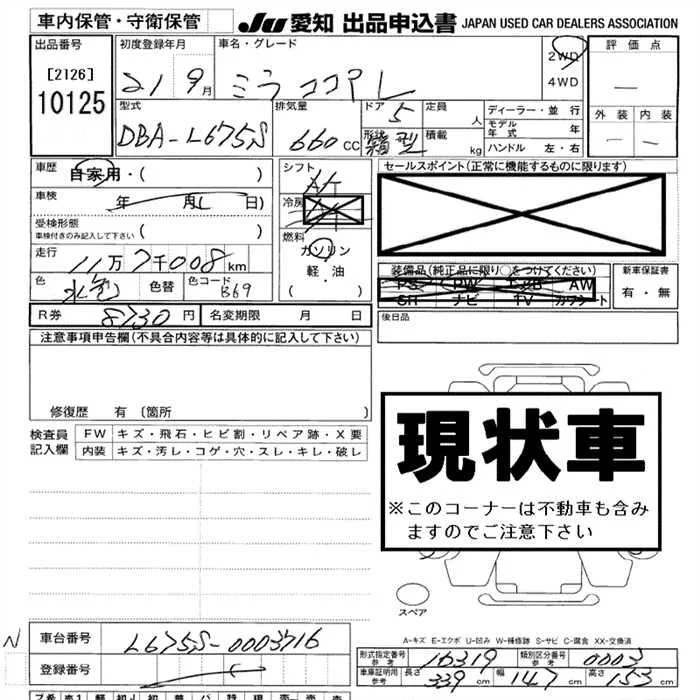 車内保管・守衛保管
JU 愛知 出品申込書 JAPAN USED CAR DEALERS ASSOCIATION
出品番号
[2126]
10125
初度登録年月
21 9月
車名・グレード
ミラ ココアL
2WD
4WD
評価点
—
外装 内装
— —
型式
DBA-L675S
排気量
660 cc
ドア 5
形状 箱型
定員 人
積載 kg
ディーラー・並行
モデル年式 年
ハンドル 左・右
車歴 自家用・( )
車検 年 月 日)
受検形態
車検付きのみ記入して下さい ( )
走行
11万7千008km
色 水色 色替 色コード B69
シフト
AT
冷房
燃料
ガソリン
軽・油
( )
セールスポイント(正常に機能するものに限ります)
装備品(純正品に限り○をつけてください)
PS PW エアB AW
SR ナビ TV カワシート
新車保証書
有・無
R券 8730円 名変期限 月 日
後日品
注意事項申告欄(不具合内容等は具体的に記入して下さい)
修復歴 有 〔箇所 〕
検査員記入欄
FW キズ・飛石・ヒビ割・リペア跡・X要
内装 キズ・汚レ・コゲ・穴・スレ・キレ・破レ
現状車
※このコーナーは不動車も含み
ますのでご注意下さい
スペア
A-キズ E-エクボ U-凹み W-補修跡 S-サビ C-腐食 XX-交換済
N
車台番号 L675S-0003716
登録番号
形式指定番号 参考 16319 類別区分番号 参考 0003
車庫証明用 参考 長さ 339 cm 幅 147 cm 高さ 153 cm